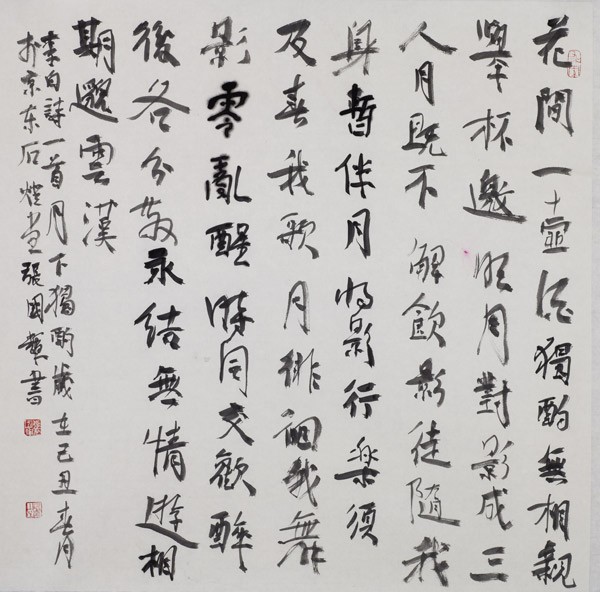 花間一壺酒獨酌無相親
舉杯邀明月對影成三
人月既不解飲影徒隨我
身暫伴月將影行樂須
及春我歌月徘徊我舞
影零亂醒時同交歡醉
後各分散永結無情遊相
期邈雲漢
李白詩一首月下獨酌歲在己丑春月
於京东石堂張國書